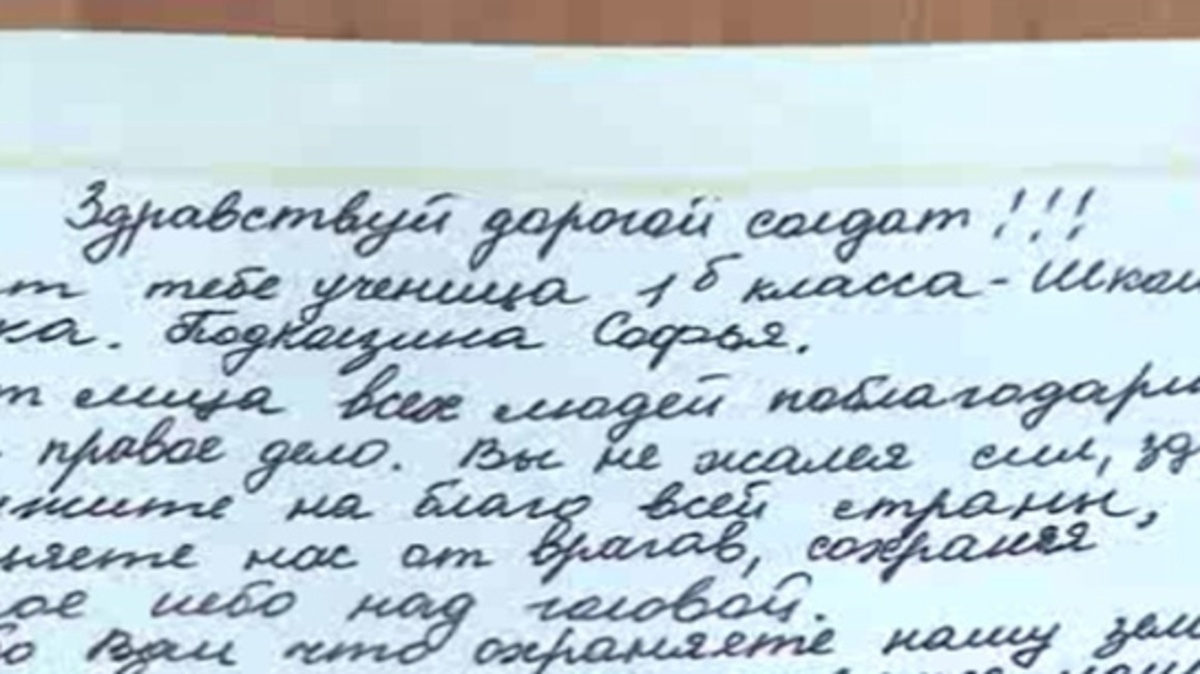 Здравствуй дорогой солдат!!!
ет тебе ученица 1б класса - Шкал
ка. Подкащина Софья.
от лица всех людей поблагодари
правое дело. Вы не жалея сил, зд
ужите на благо всей страны,
няете нас от врагов, сохраняя
ое небо над головой.
бо Вам что охраняете нашу земл